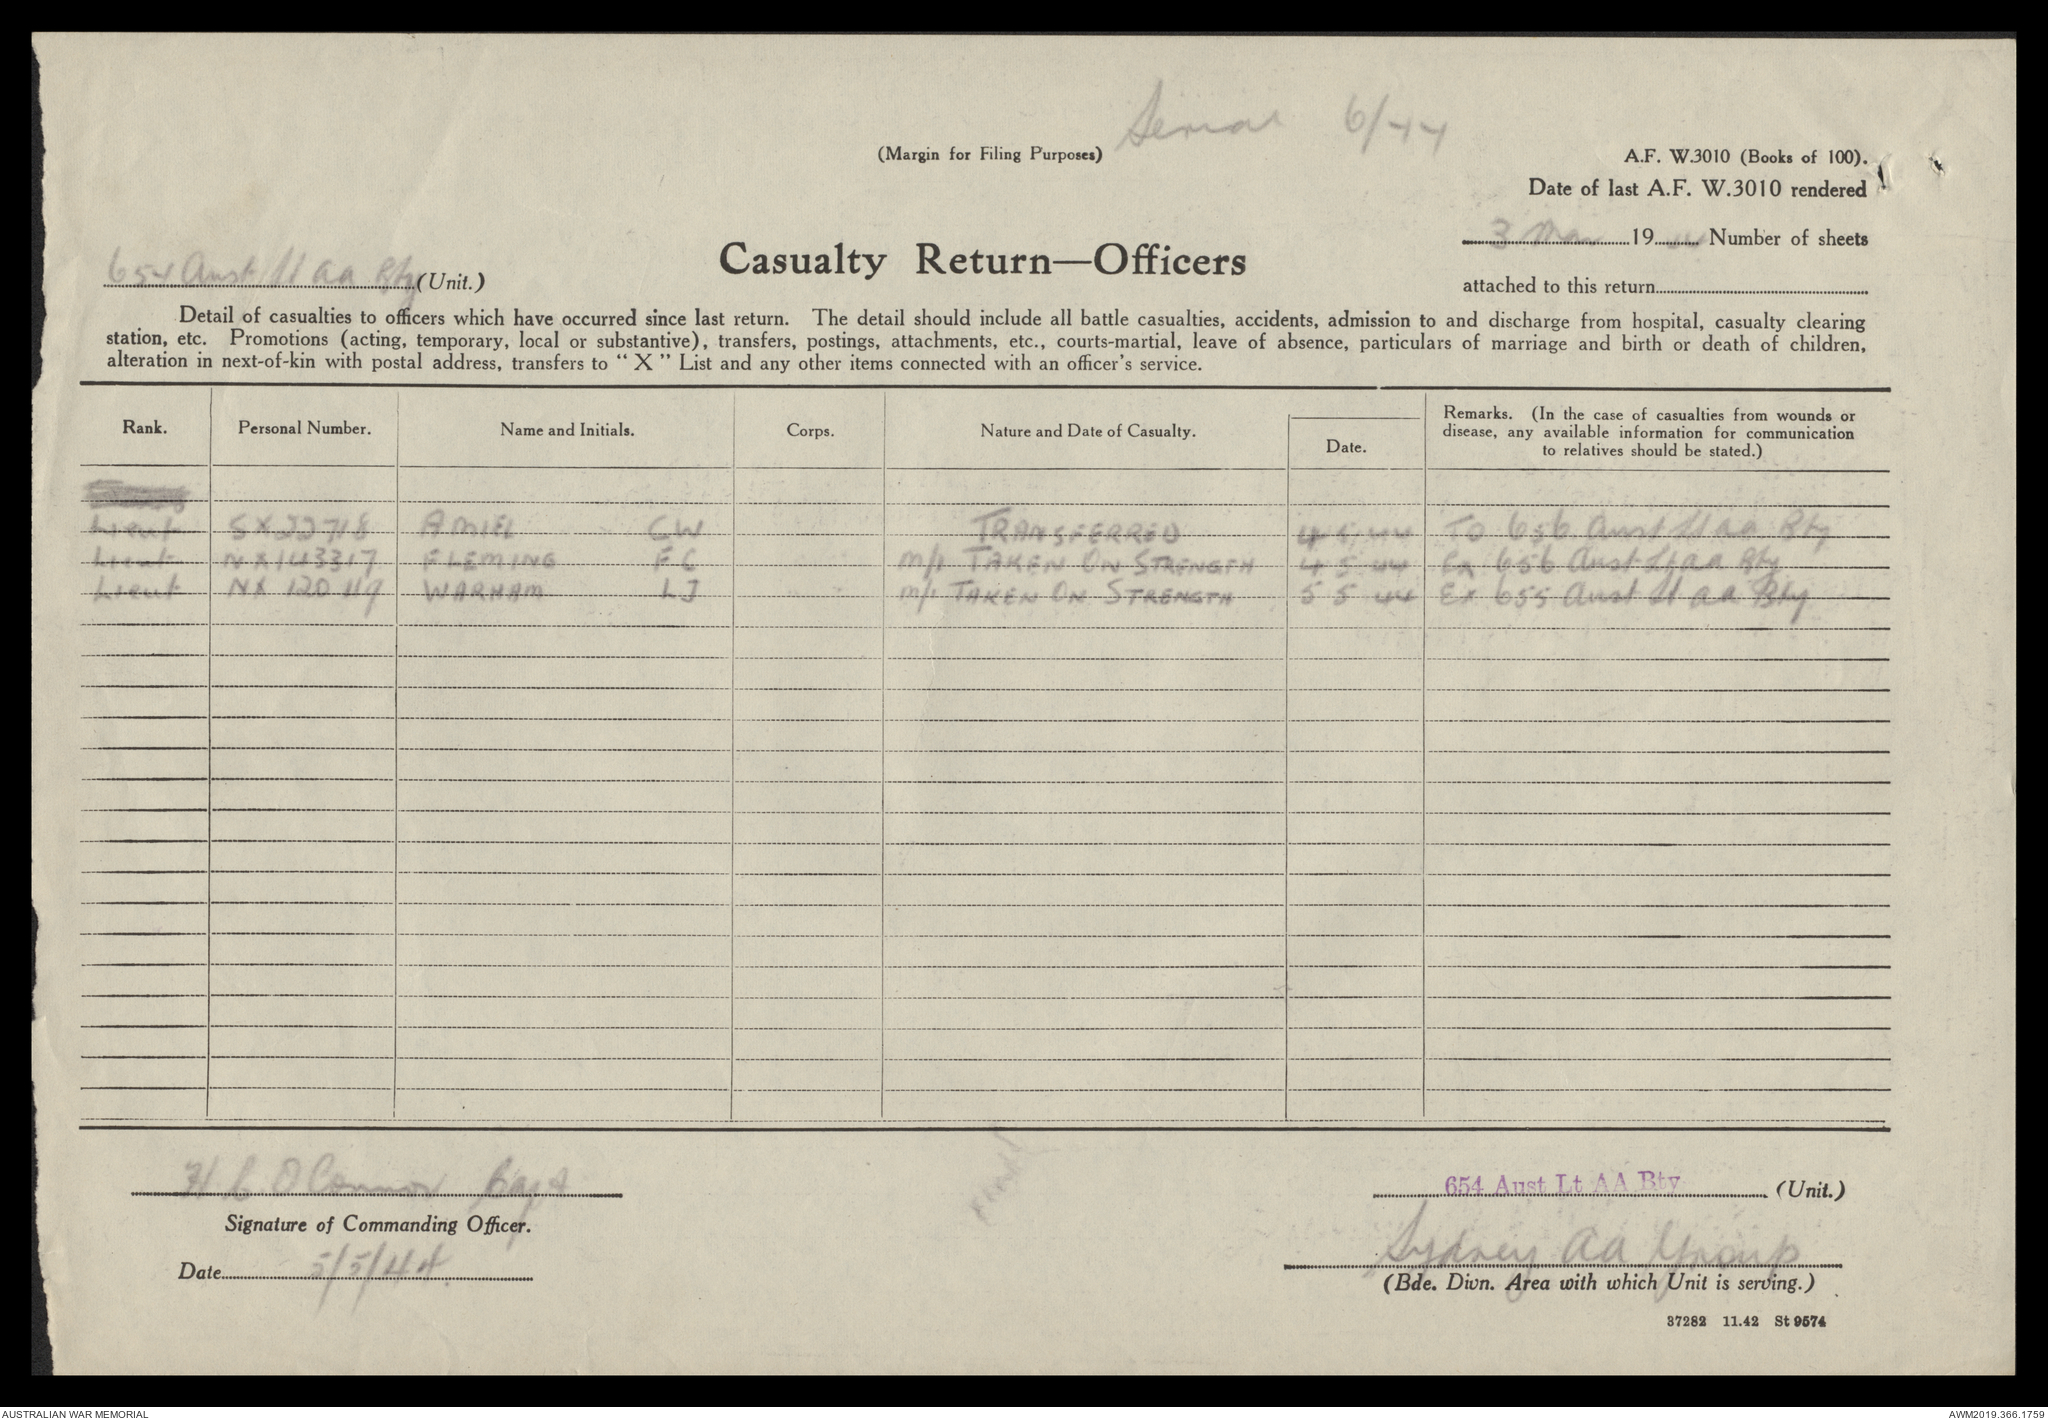 Serial 6/44
(Margin for Filing Purposes)
A.F. W.3010 (Books of 100).
Date of last A.F. W.3010 rendered
3 May 1944 Number of sheets
attached to this return
654 Aust Lt AA Bty (Unit.)
Casualty Return—Officers
Detail of casualties to officers which have occurred since last return. The detail should include all battle casualties, accidents, admission to and discharge from hospital, casualty clearing
station, etc. Promotions (acting, temporary, local or substantive), transfers, postings, attachments, etc., courts-martial, leave of absence, particulars of marriage and birth or death of children,
alteration in next-of-kin with postal address, transfers to "X" List and any other items connected with an officer's service.
Rank. Personal Number. Name and Initials. Corps. Nature and Date of Casualty. Date. Remarks. (In the case of casualties from wounds or
disease, any available information for communication
to relatives should be stated.)
Lieut SX22718 AMIEL CW TRANSFERRED 4 5 44 To 656 Aust Lt AA Bty
Lieut NX143317 FLEMING FC m/i TAKEN ON STRENGTH 4 5 44 Ex 656 Aust Lt AA Bty
Lieut NX120119 WARHAM LJ m/i TAKEN ON STRENGTH 5 5 44 Ex 655 Aust Lt AA Bty
O'Connor Capt
Signature of Commanding Officer.
Date 5/5/44.
654 Aust Lt AA Bty (Unit.)
Sydney AA Group
(Bde. Divn. Area with which Unit is serving.)
37282 11.42 St 9574
AUSTRALIAN WAR MEMORIAL
AWM2019.366.1759